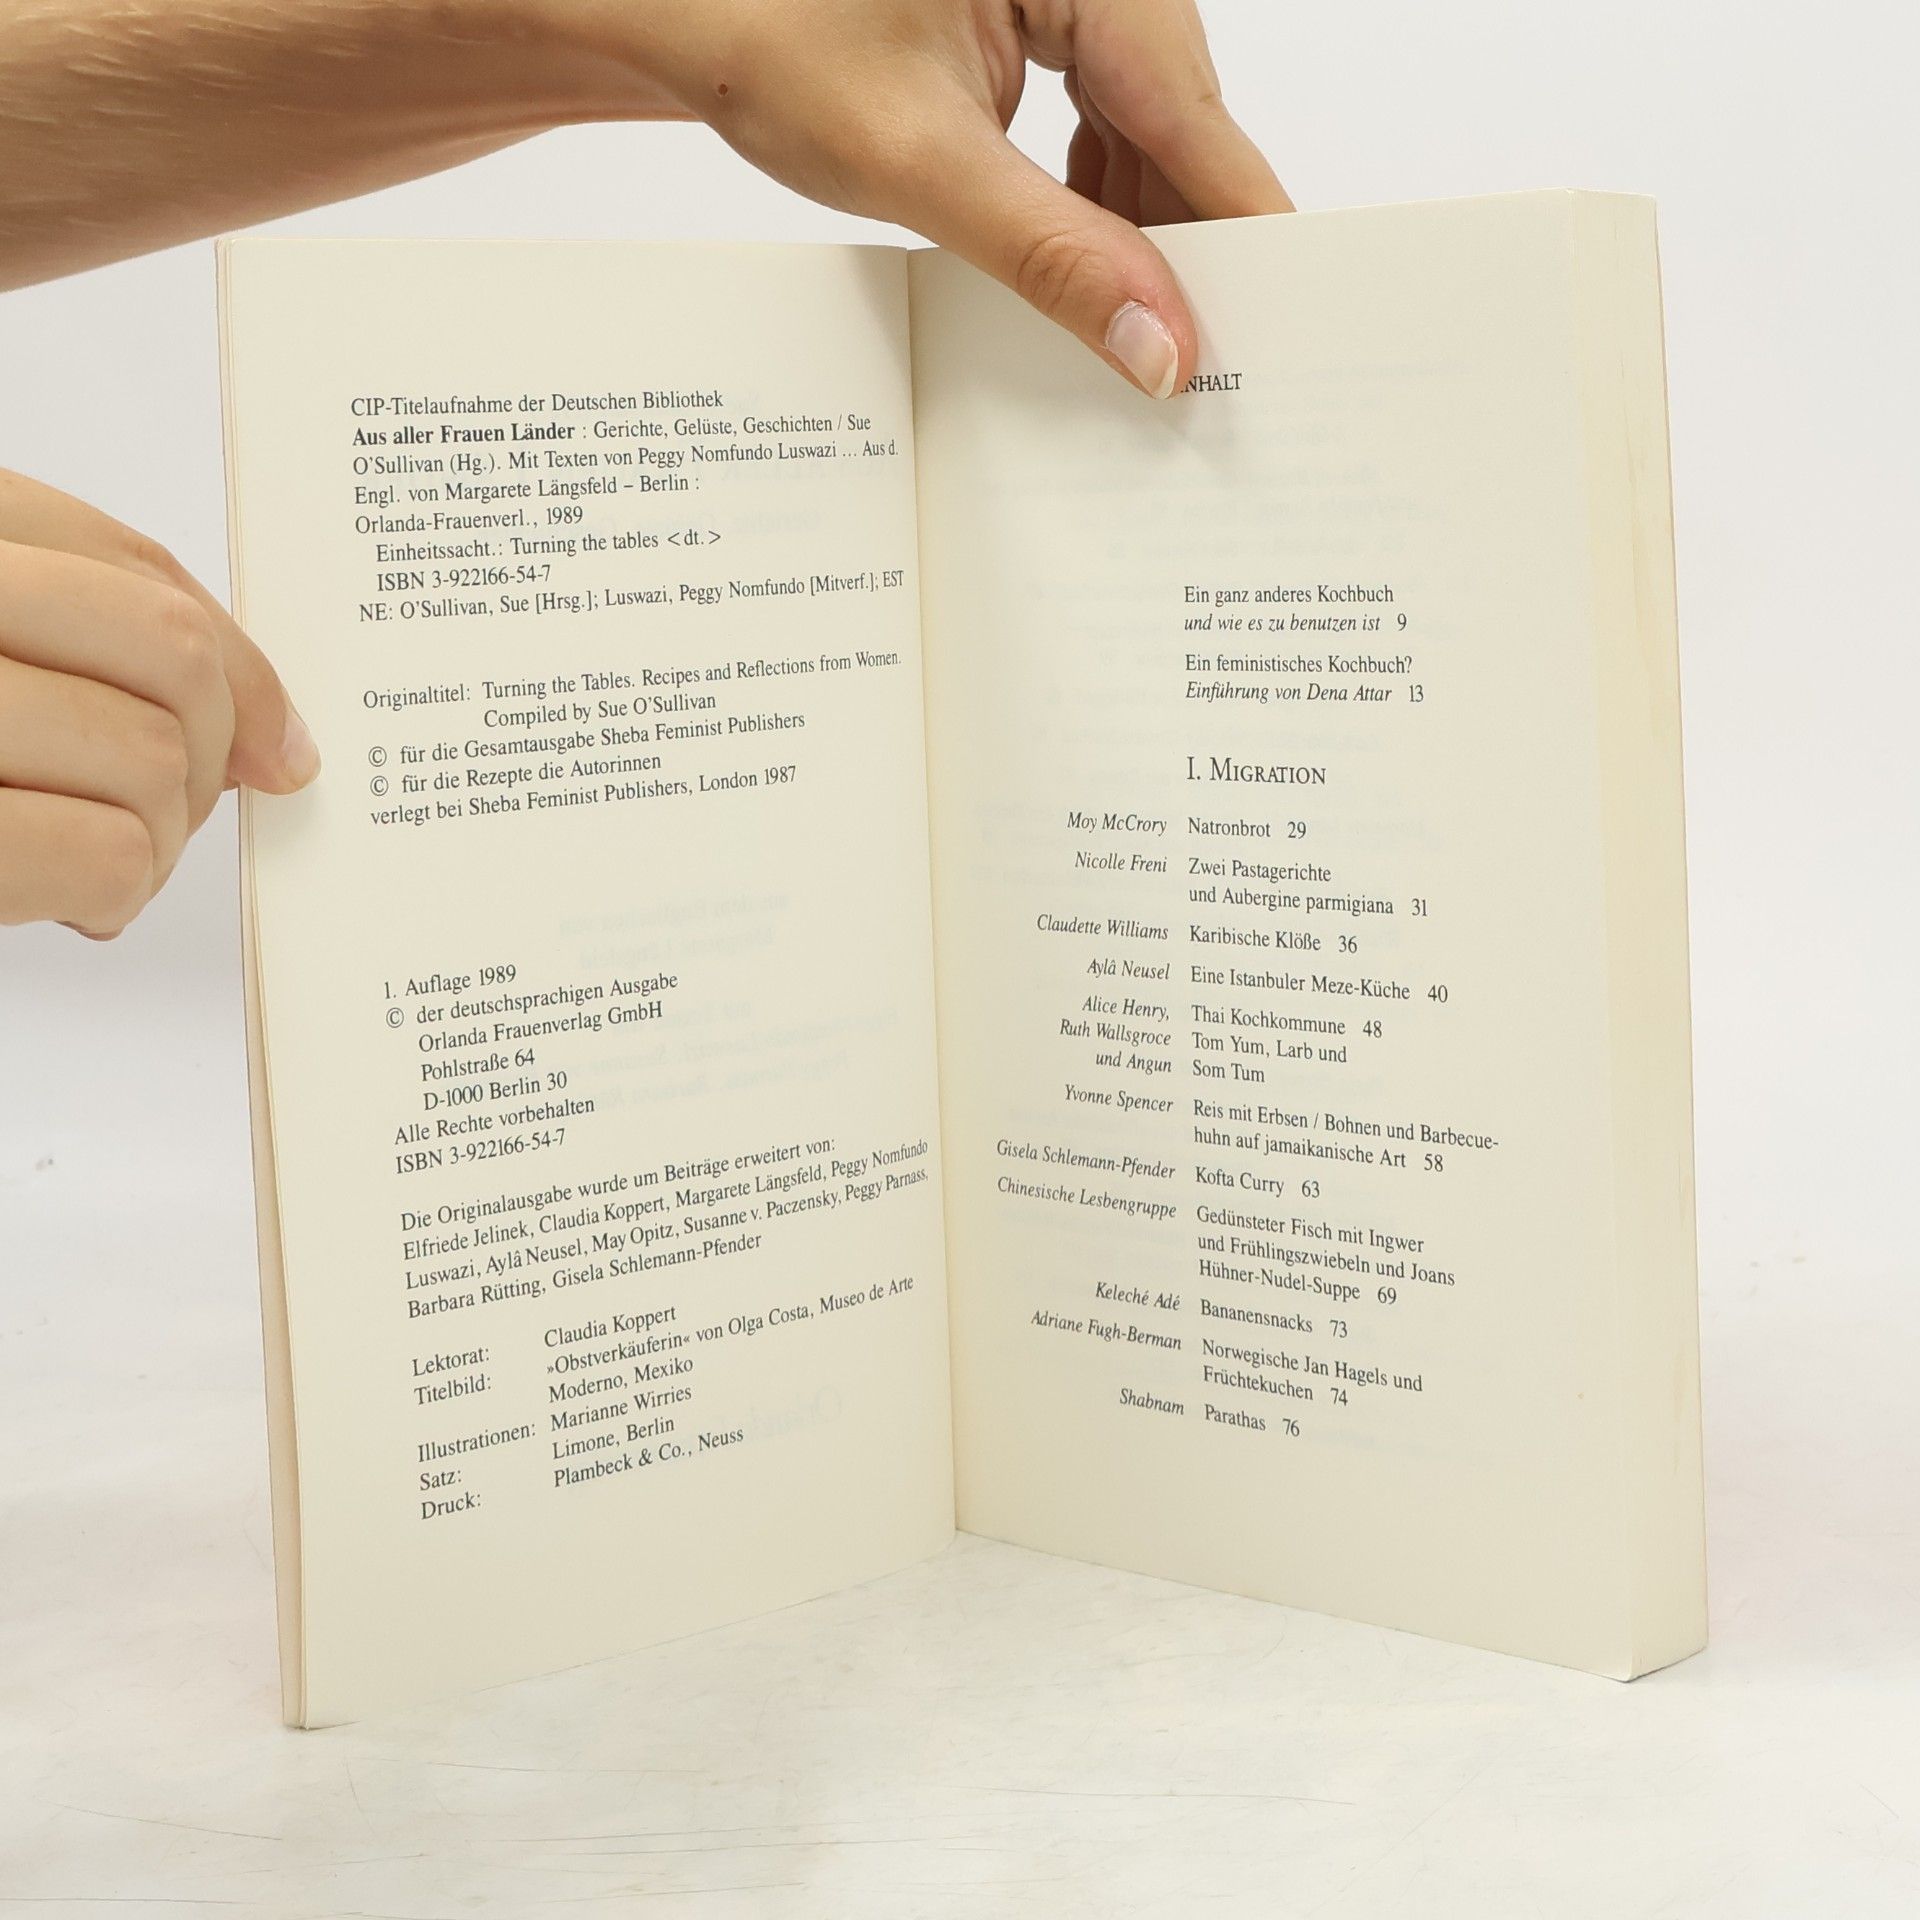 CIP-Titelaufnahme der Deutschen Bibliothek
Aus aller Frauen Länder : Gerichte, Gelüste, Geschichten / Sue
O'Sullivan (Hg.). Mit Texten von Peggy Nomfundo Luswazi ... Aus d.
Engl. von Margarete Längsfeld – Berlin :
Orlanda-Frauenverl., 1989
Einheitssacht.: Turning the tables <dt.>
ISBN 3-922166-54-7
NE: O'Sullivan, Sue [Hrsg.]; Luswazi, Peggy Nomfundo [Mitverf.]; EST
Originaltitel: Turning the Tables. Recipes and Reflections from Women.
Compiled by Sue O'Sullivan
© für die Gesamtausgabe Sheba Feminist Publishers
© für die Rezepte die Autorinnen
verlegt bei Sheba Feminist Publishers, London 1987
1. Auflage 1989
© der deutschsprachigen Ausgabe
Orlanda Frauenverlag GmbH
Pohlstraße 64
D-1000 Berlin 30
Alle Rechte vorbehalten
ISBN 3-922166-54-7
Die Originalausgabe wurde um Beiträge erweitert von:
Elfriede Jelinek, Claudia Koppert, Margarete Längsfeld, Peggy Nomfundo
Luswazi, Aylâ Neusel, May Opitz, Susanne v. Paczensky, Peggy Parnass,
Barbara Rütting, Gisela Schlemann-Pfender
Lektorat: Claudia Koppert
Titelbild: »Obstverkäuferin« von Olga Costa, Museo de Arte
Moderno, Mexiko
Illustrationen: Marianne Wirries
Satz: Limone, Berlin
Druck: Plambeck & Co., Neuss
NHALT
Ein ganz anderes Kochbuch
und wie es zu benutzen ist 9
Ein feministisches Kochbuch?
Einführung von Dena Attar 13
I. MIGRATION
Moy McCrory Natronbrot 29
Nicolle Freni Zwei Pastagerichte
und Aubergine parmigiana 31
Claudette Williams Karibische Klöße 36
Aylâ Neusel Eine Istanbuler Meze-Küche 40
Alice Henry, Thai Kochkommune 48
Ruth Wallsgroce Tom Yum, Larb und
und Angun Som Tum
Yvonne Spencer Reis mit Erbsen / Bohnen und Barbecue-
huhn auf jamaikanische Art 58
Gisela Schlemann-Pfender Kofta Curry 63
Chinesische Lesbengruppe Gedünsteter Fisch mit Ingwer
und Frühlingszwiebeln und Joans
Hühner-Nudel-Suppe 69
Keleché Adé Bananensnacks 73
Adriane Fugh-Berman Norwegische Jan Hagels und
Früchtekuchen 74
Shabnam Parathas 76